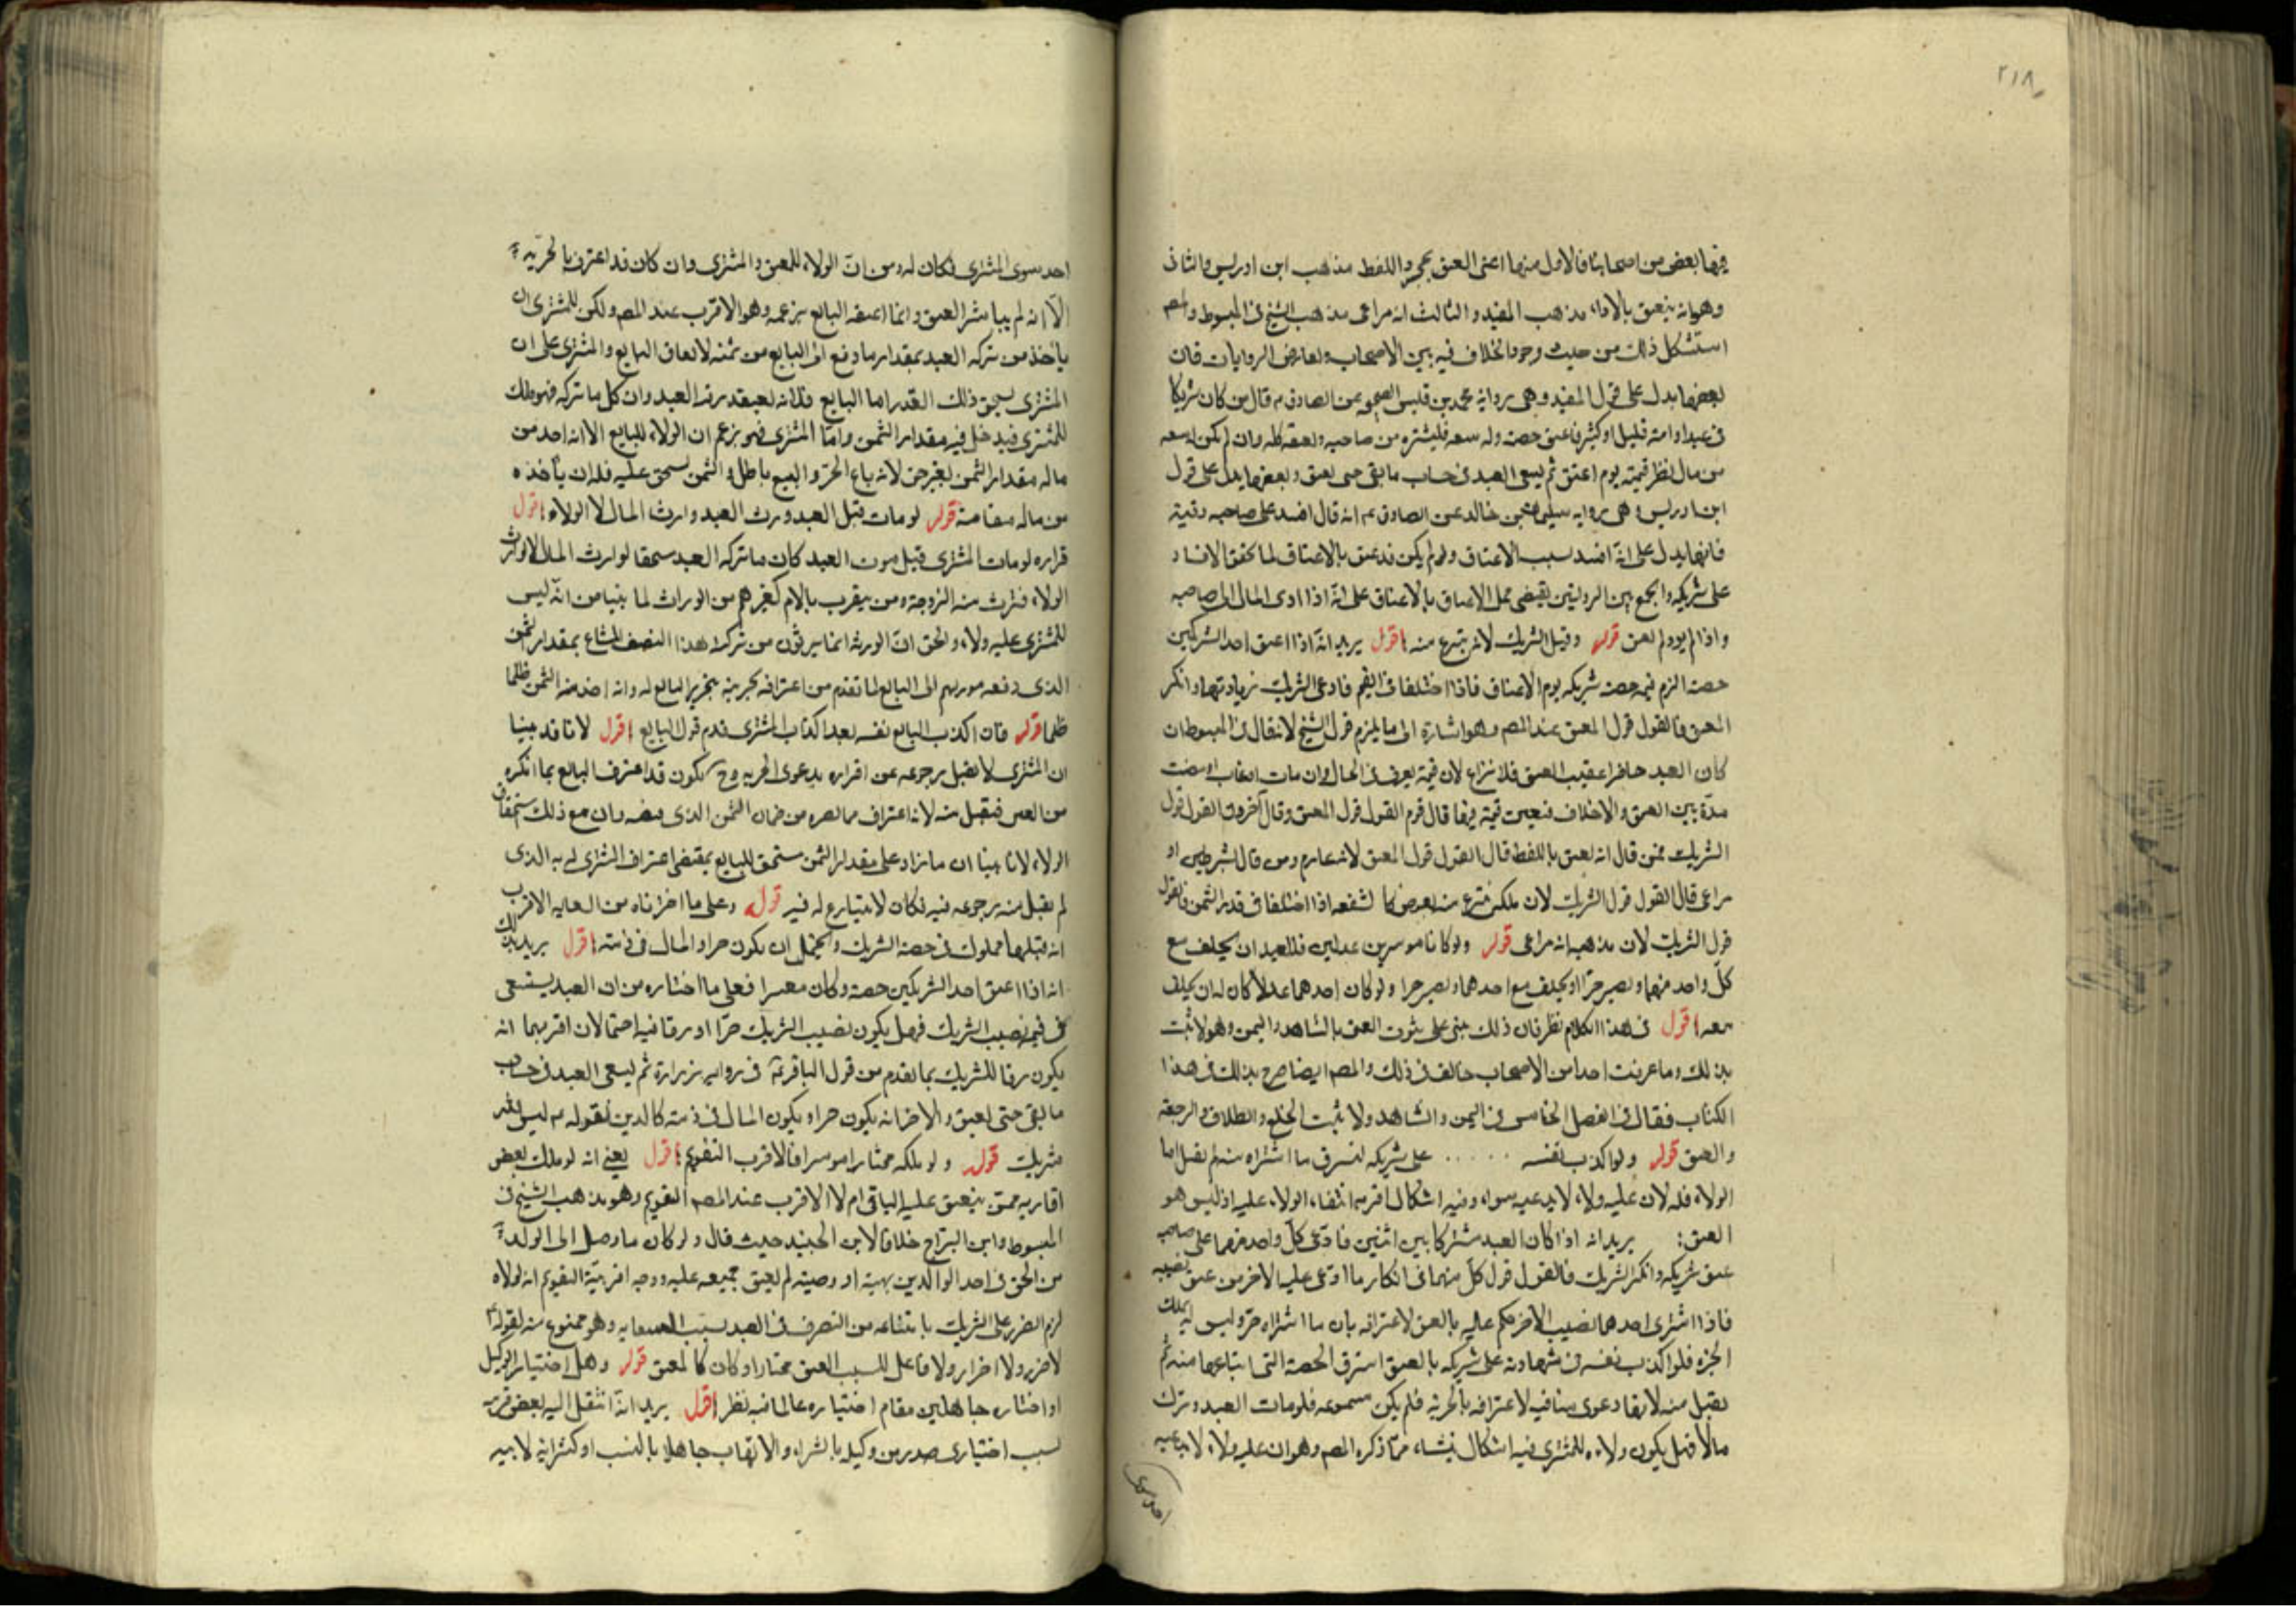 ٢١٨
فيها بعض من اصحابنا فالاول منها اعنى العتق بمجرد اللفظ مذهب ابن ادريس والثانى
وهو انه ينعتق بالاداء مذهب المفيد والثالث انه مراعى مذهب الشيخ فى المبسوط والمص
استشكل ذلك من حيث وجود الخلاف فيه بين الاصحاب وتعارض الروايات فان
بعضها يدل على قول المفيد وهى رواية محمد بن قيس الصحيحه عن الصادق ع قال من كان شريكا
فى عبد او امة قليل او كثير فاعتق حصته وله سعه فليشتره من صاحبه ويعتقه كله وان لم يكن له سعه
من مال نظر قيمته يوم اعتق ثم يسعى العبد فى حساب ما بقى حتى يعتق وبعضها يدل على قول
ابن ادريس وهى روايه سليمان بن خالد عن الصادق عم انه قال افسد على صاحبه وقيته
فانها يدل على انه افسد بسبب الاعتاق ولو لم يكن قد عتق بالاعتاق لما تحقق الافساد
على شريكه والجمع بين الروايتين يقتضى حمل الاعتاق بالاعتاق على انه اذا ادى المال الى صاحبه
واذا لم يود لم يعتق قوله وقيل الشريك لانه ينتزع منه اقول يريد انه اذا اعتق احد الشريكين
حصته الزم قيمة حصة شريكه يوم الاعتاق فاذا اختلفا فى القيمه فادعى الشريك زيادتها وانكر
المعتق فالقول قول المعتق عند المص وهو اشارة الى ما يلزم قول الشيخ لانه قال فى المبسوط ان
كان العبد حاضرا عقيب العتق فلا نزاع لان قيمته يعرف فى الحال وان مات او غاب او مضت
مدة بين العتق والاختلاف فتعينت قيمته فيها قال قوم القول قول المعتق وقال آخرون القول قول
الشريك فمن قال انه يعتق باللفظ قال القول قول المعتق لانه غارم ومن قال بشرطين او
مراعى قال القول قول الشريك لان ملكه ينتزع منه بعوض كالشفعه اذا اختلفا فى قدر الثمن فالقول
قول الشريك لان مذهبه انه مراعى قوله ولو كانا موسرين عدلين فللعبد ان يحلف مع
كل واحد منهما ويصير حرا او يحلف مع احدهما ويصير حرا ولو كان احدهما عدلا كان له ان يحلف
معه اقول فى هذا الكلام نظر فان ذلك مبنى على ثبوت العتق بالشاهد واليمين وهو لا يثبت
بذلك وما عرفت احدا من الاصحاب خالف فى ذلك والمص ايضا صرح بذلك فى هذا
الكتاب فقال فى الفصل الخامس فى اليمين والشاهد ولا يثبت الخلع والطلاق والرجعة
والعتق قوله ولو اكذب نفسه ..... على شريكه ليسترق ما اشتراه منه لم يقبل اما
الولاء فله لان عليه ولاء لا يدعيه سواه وفيه اشكال اقربه انتفاء الولاء عليه اذ ليس هو
المعتق: يريد انه اذا كان العبد مشتركا بين اثنين فادعى كل واحد منهما على صاحبه
عتق شريكه وانكر الشريك فالقول قول كل منهما فى انكار ما ادعى عليه الآخر من عتق نصيبه
فاذا اشترى احدهما نصيب الآخر حكم عليه بالعتق لاعترافه بان ما اشتراه حر وليس له تملك
الجزء فلو اكذب نفسه فى شهادته على شريكه بالعتق استرق الحصة التى ابتاعها منه لم
يقبل منه لانها دعوى منافيه لاعترافه بالحرية فلم يكن مسموعه فلو مات العبد وترك
مالا فهل يكون ولاءه للمشترى فيه اشكال ينشاء مما ذكره المص وهو ان عليه ولاء لا يدعيه
احد سوى
احد سوى المشترى فكان له ومن ان الولاء للمعتق والمشترى وان كان قد اعترف بالحريه
الا انه لم يباشر العتق وانما اعتقه البائع بزعمه وهو الاقرب عند المص ولكن للمشترى ان
ياخذ من تركه العبد بمقدار ما دفع الى البايع من ثمنه لاتفاق البايع والمشترى على ان
المشترى يستحق ذلك القدر اما البايع فلانه يعتقد رقية العبد وان كل ما تركه فهو ملك
للمشترى فيدخل فيه مقدار الثمن واما المشترى فهو يزعم ان الولاء للبايع الا انه اخذ من
ماله مقدار الثمن بغير حق لانه باع الحر والبيع باطل والثمن يستحق عليه فله ان ياخذه
من ماله مقاصة قوله لو مات قبل العبد ورث العبد وارث المال لا الولاء اقول
قراره لو مات المشترى قبل موت العبد كان ما تركه العبد مستحقا لوارث المال لا لوارث
الولاء فترث منه الزوجة ومن يتقرب بالام كغيرهم من الوراث لما بينا من انه ليس
للمشترى عليه ولاء والحق ان الورثه انما يرثون من تركته هذا النصف المشاع بمقدار الثمن
الذى دفعه مورثهم الى البايع لما تقدم من اعترافه بحريته بتحرير البايع له وانه اخذ منه الثمن ظلما
ظلما قوله فان اكذب البايع نفسه بعد اكذاب المشترى قدم قول البايع اقول لانا قد بينا
ان المشترى لا يقبل رجوعه عن اقراره بدعوى الحريه وح يكون قد اعترف البايع بما انكره
من العتق فيقبل منه لانه اعتراف بما يضره من ضمان الثمن الذى قبضه وان مع ذلك مستحقا
الولاء لانا بينا ان ما زاد على مقدار الثمن مستحق للبايع بمقتضى اعتراف المشترى له به الذى
لم يقبل منه رجوعه فيه فكان لا ينازع له فيه قوله وعلى ما اخترناه من السعايه الاقرب
انه قبلها مملوك فى حصة الشريك ويحتمل ان يكون حرا والمال فى ذمته اقول يريد بذلك
انه اذا اعتق احد الشريكين حصته وكان معسرا فعلى ما اختاره من ان العبد يستسعى
فى قيمة نصيب الشريك فهل يكون نصيب الشريك حرا او رقا فيه احتمالان اقربهما انه
يكون رقا للشريك بما تقدم من قول الباقر عم فى روايه زرارة ثم ليسعى العبد فى حساب
ما بقى حتى يعتق والآخر انه يكون حرا ويكون المال فى ذمته كالدين لقوله ع ليس لله
شريك قوله ولو ملكه مختارا موسرا فالاقرب التقويم اقول يعنى انه لو ملك بعض
اقاربه ممن ينعتق عليه الباقى ام لا الاقرب عند المص التقويم وهو مذهب الشيخ فى
المبسوط وابن البراج خلافا لابن الجنيد حيث قال ولو كان ما وصل الى الولد
من الحق فى احد الوالدين بهبة او وصيته لم يعتق جميعه عليه ووجه اقربية التقويم انه لولاه
لزم الضرر على الشريك بامتناعه من التصرف فى العبد بسبب السعايه وهو ممنوع منه لقوله ع
لا ضرر ولا اضرار ولا فاعل للسبب العتق مختارا وكان كالمعتق قوله وهل اختيار الوكيل
او اختياره جاهلين مقام اختياره عالما فيه نظر اقول يريد انه انتقل اليه بعض قريبه
بسبب اختيارى صدر من وكيله بالشراء والاتهاب جاهلا بالنسب او كشرائه لابيه